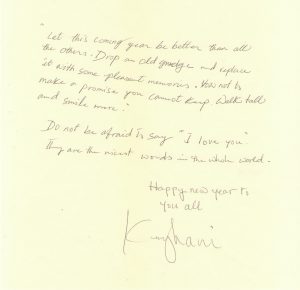 "
Let this coming year be better than all
the others. Drop an old grudge and replace
it with some pleasant memories. Vow not to
make a promise you cannot keep. Walk tall
and smile more."
Do not be afraid to say "I love you"
They are the nicest words in the whole world.
Happy new year to
you all